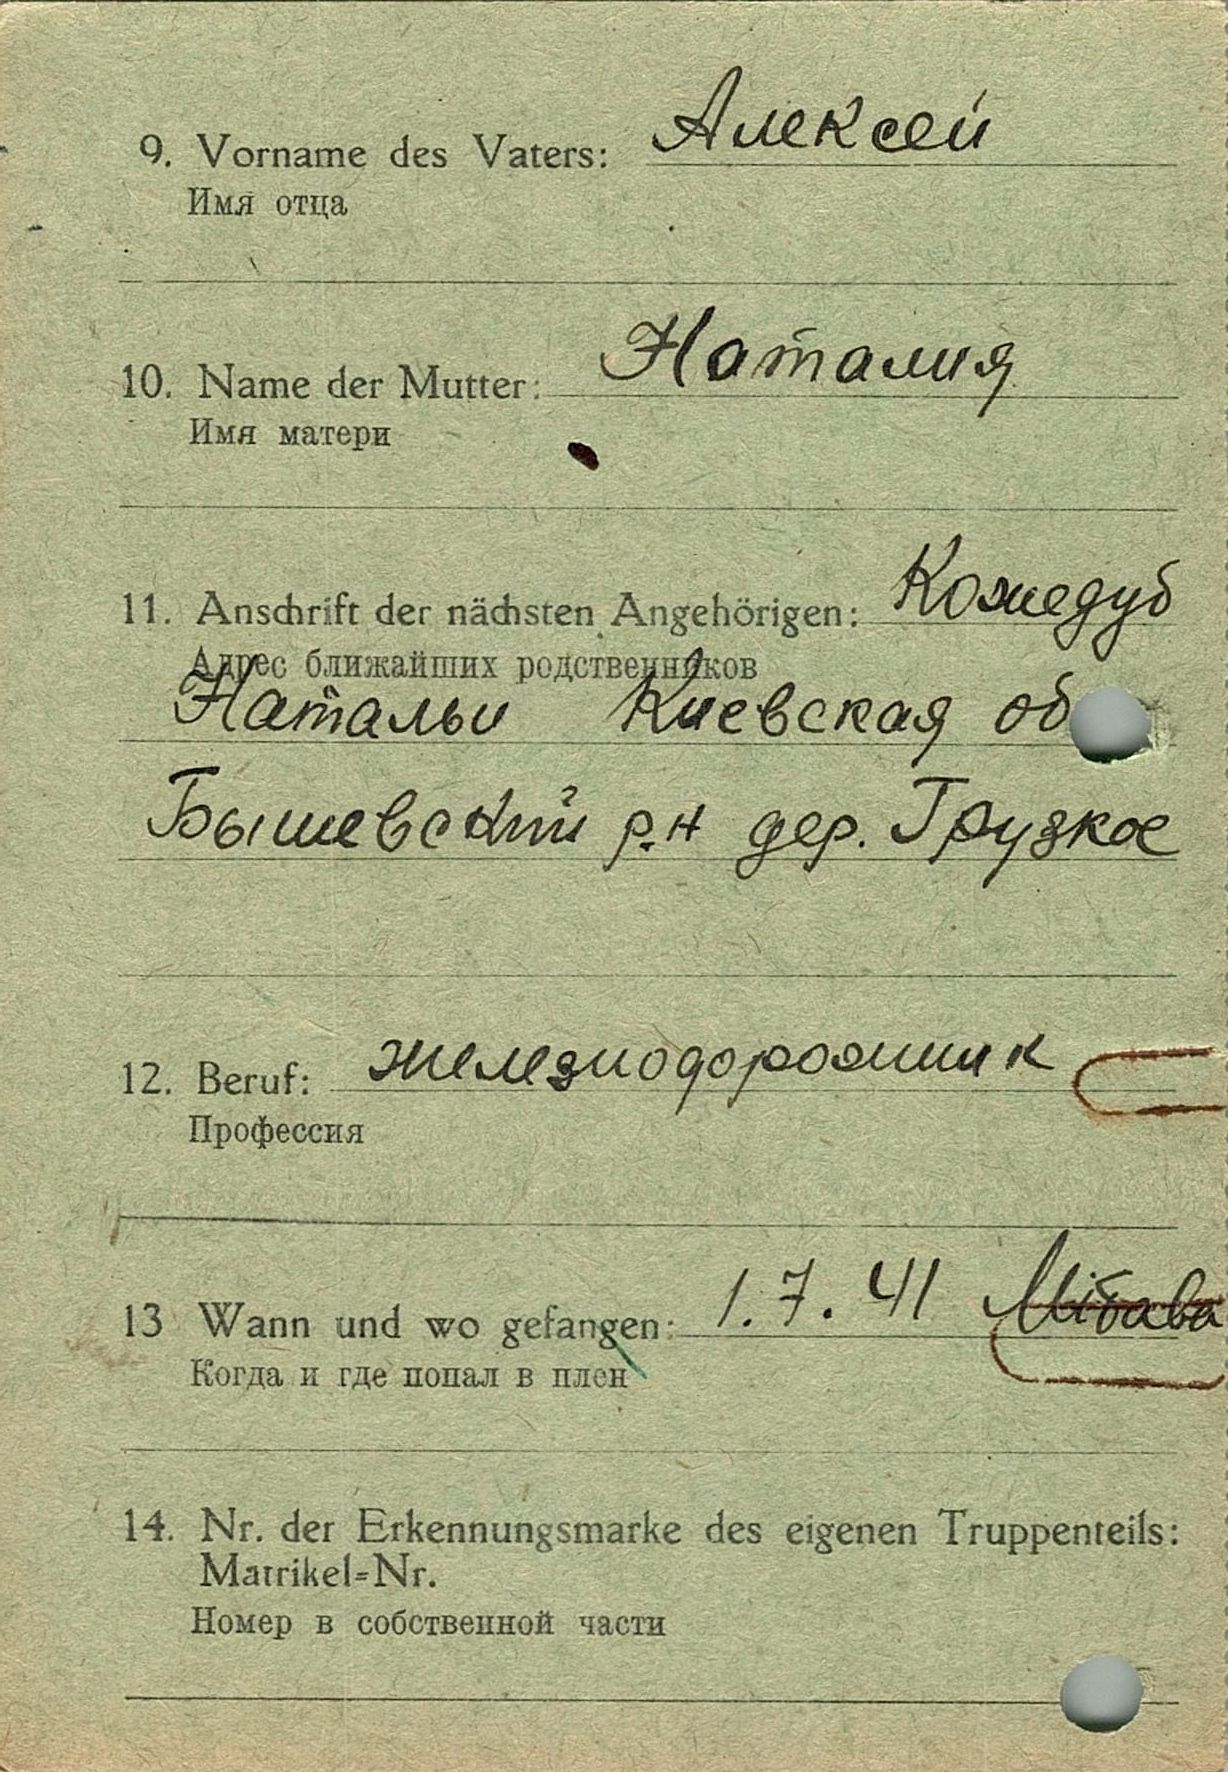 9. Vorname des Vaters: Алексей
Имя отца
10. Name der Mutter: Наталия
Имя матери
11. Anschrift der nächsten Angehörigen: Кожедуб
Адрес ближайших родственников
Натальи Киевская об
Бышевский р.н дер. Грузкое
12. Beruf: железнодорожник
Профессия
13 Wann und wo gefangen: 1.7.41
Когда и где попал в плен
14. Nr. der Erkennungsmarke des eigenen Truppenteils:
Matrikel=Nr.
Номер в собственной части